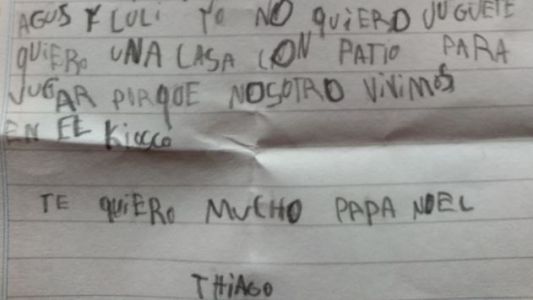 AGUS Y LULI YO NO QUIERO JUGUETE
QUIERO UNA CASA CON PATIO PARA
JUGAR PORQUE NOSOTRO ViViMOS
EN EL KiOSCO
TE QUIERO MUCHO PAPA NOEL
THiAGO